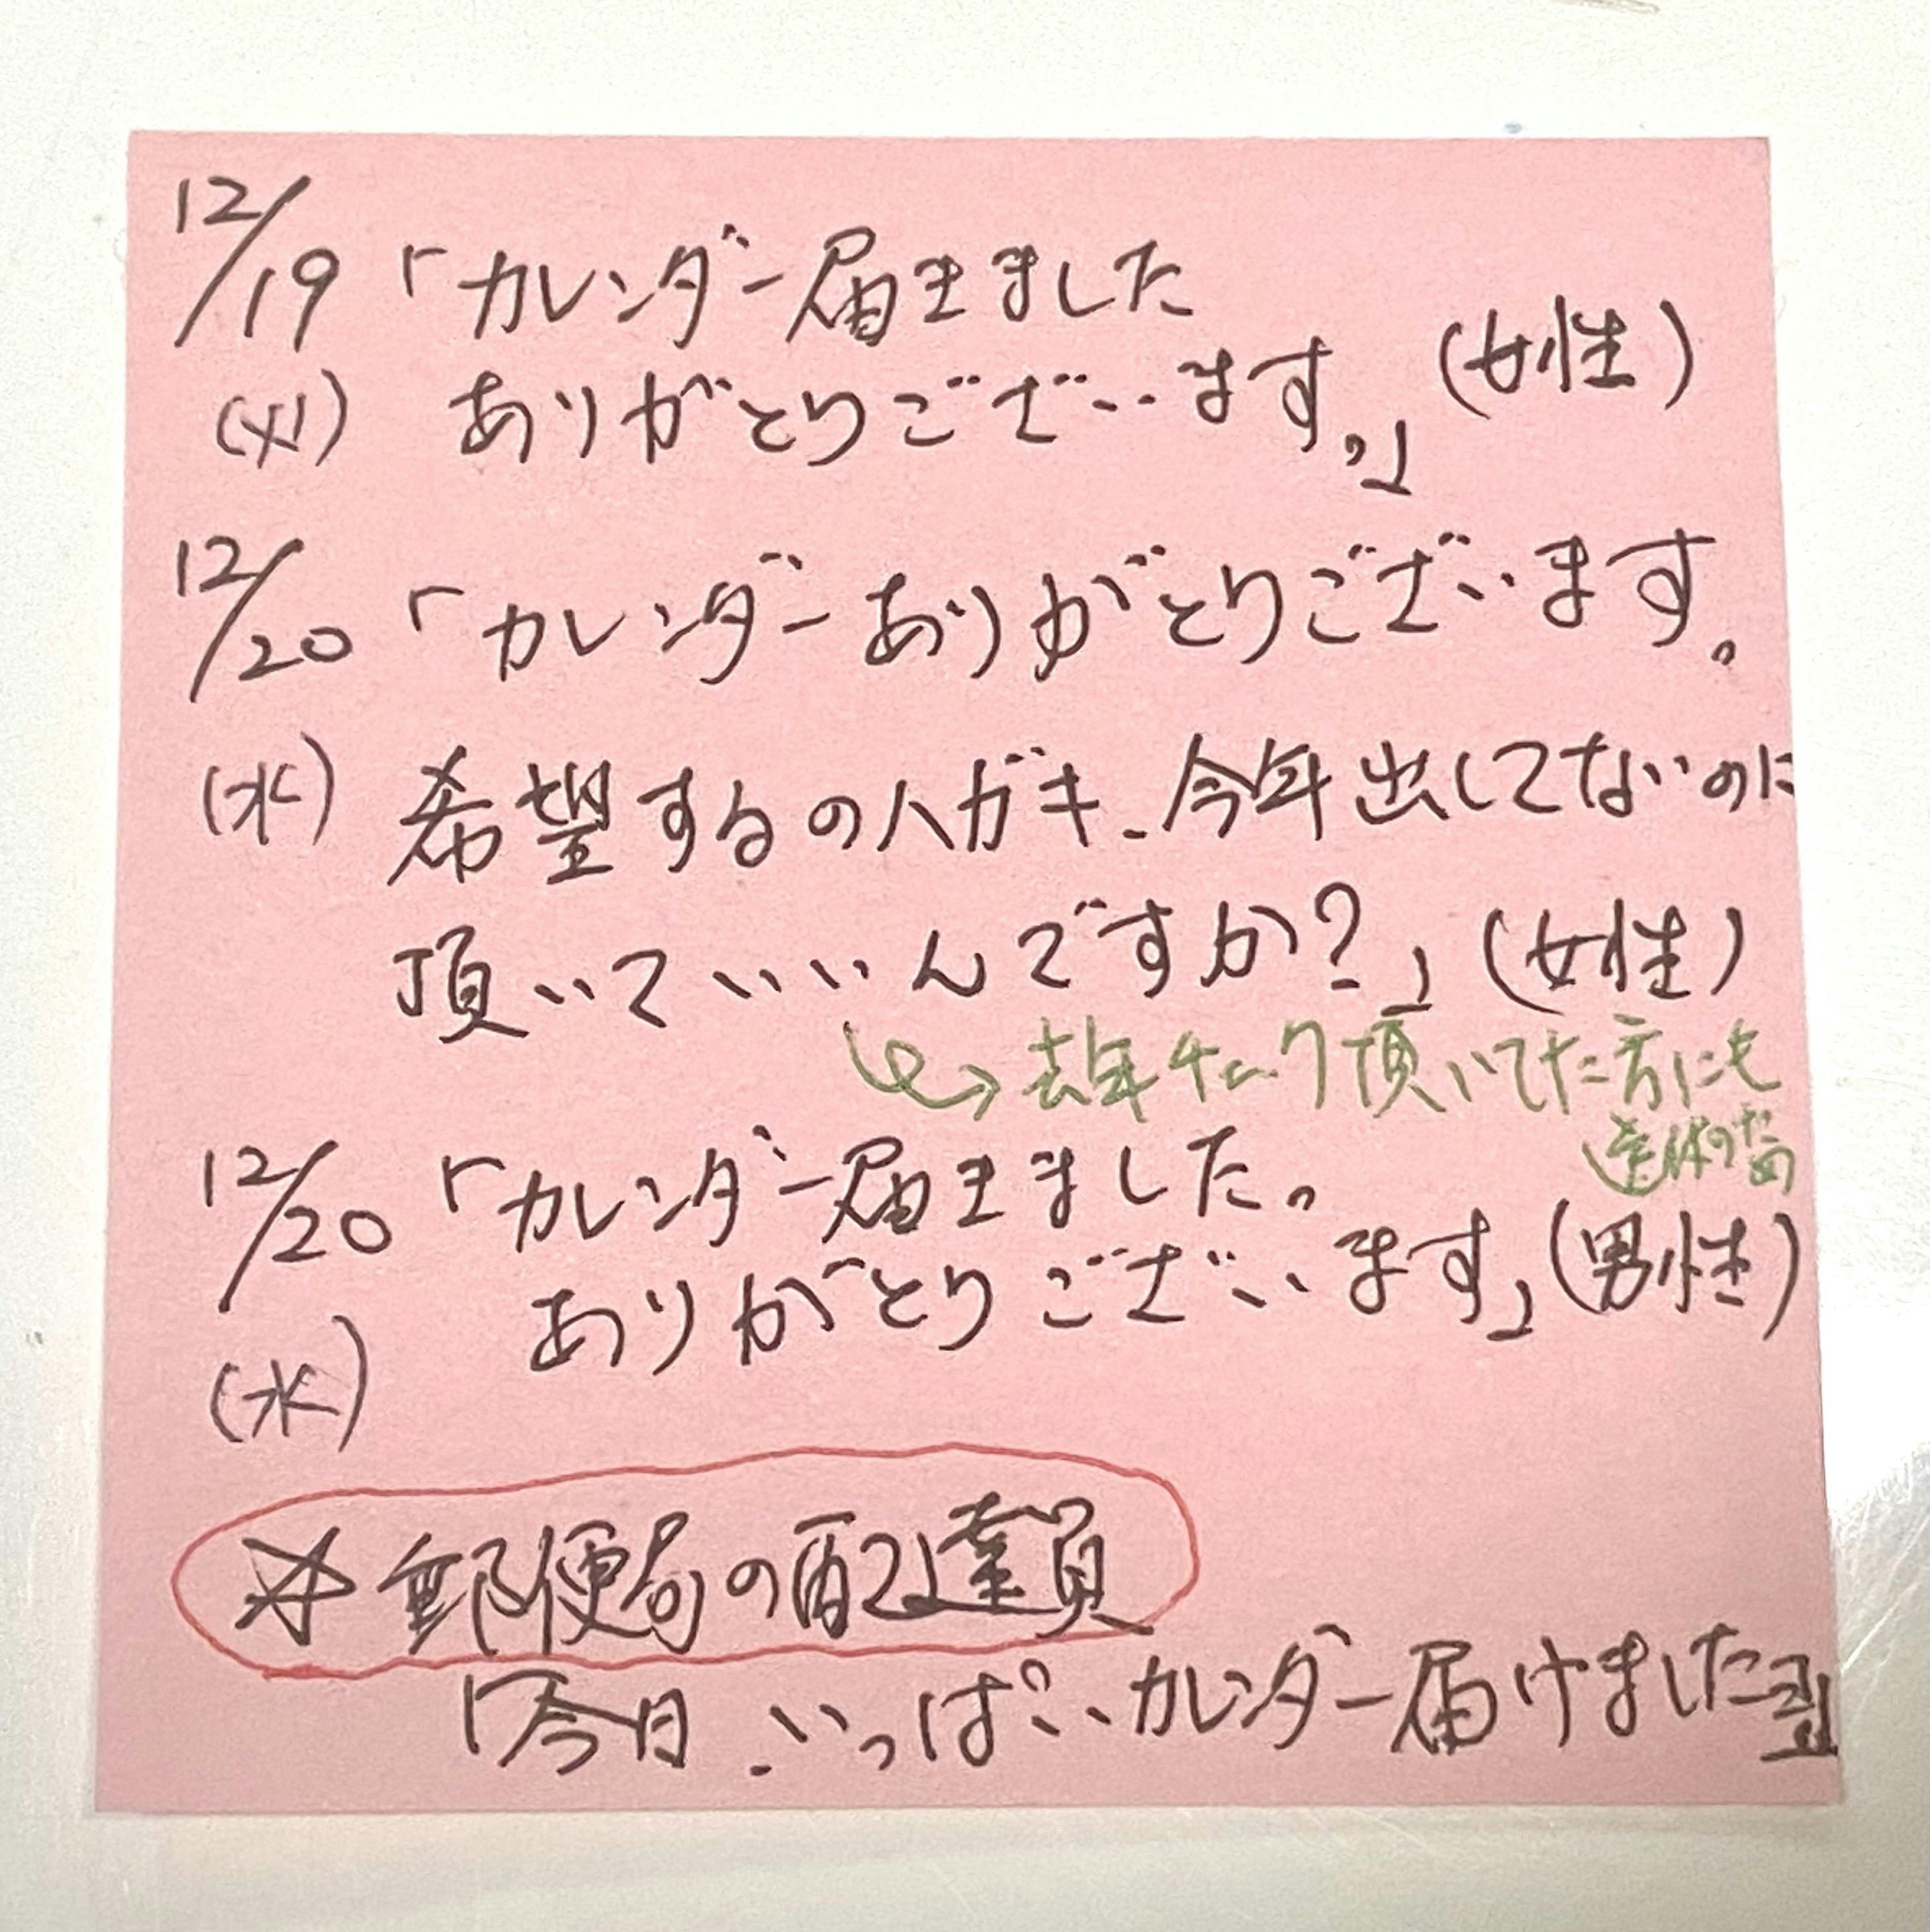 12/19 「カレンダー届きました
(火) ありがとうございます。」 (女性)
12/20 「カレンダーありがとうございます。
(水) 希望するのハガキ、今年出してないのに
頂いていいんですか?」 (女性)
→ 去年チェック頂いてた方にも
12/20 「カレンダー届きました。
ありがとうございます」 (男性)
(水)
※郵便局の配達員
「今日、いっぱいカレンダー届けました